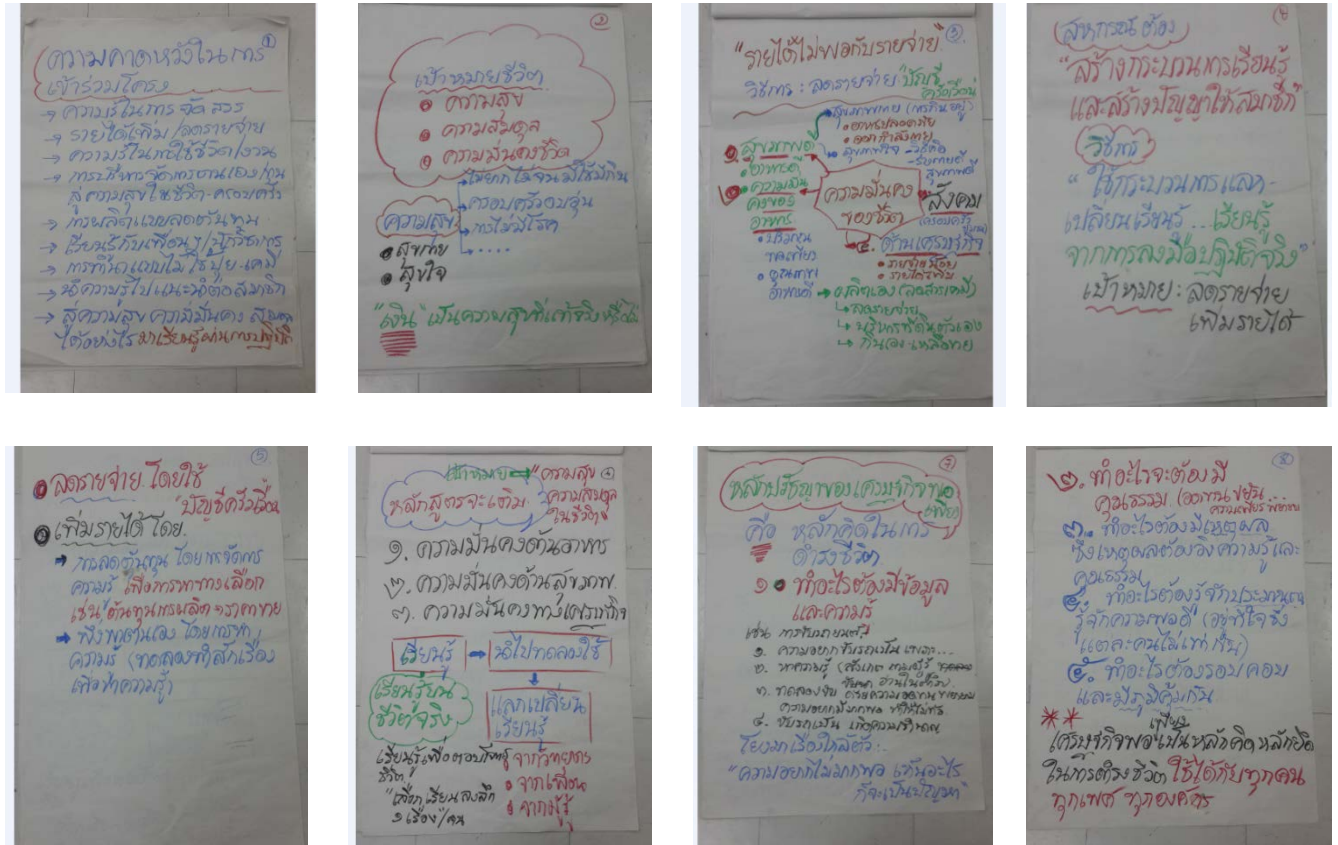 ①
ความคาดหวังในการ
เข้าร่วมโครง
→ ความรู้ในการจัดสรร
→ รายได้เพิ่ม/ลดรายจ่าย
→ ความรู้ในการใช้ชีวิต/งาน
→ การบริหารจัดการตนเอง/งาน
สู่ความสุขให้ชีวิต-ครอบครัว
→ การผลิตแบบลดต้นทุน
→ เรียนรู้กับเพื่อนๆ/
→ การทำนาแบบไม่ใช้ปุ๋ย-เคมี
→ นำความรู้ไปแนะนำต่อสมาชิก
→ สู่ความสุข ความมั่นคง
ได้อย่างไร มาเรียนรู้ผ่านการปฏิบัติ
②
เป้าหมายชีวิต
ความสุข
ความสมดุล
ความมั่นคงชีวิต
ความสุข
ไม่ยากไม่จน มีใช้มีกิน
ครอบครัวอบอุ่น
การไม่มีโรค
....
สุขกาย
สุขใจ
"เงิน" เป็นความสุขที่แท้จริง
③
"รายได้ไม่พอกับรายจ่าย"
วิธีการ : ลดรายจ่าย "บัญชี
ครัวเรือน"
สุขภาพกาย (การกินอยู่)
อาหารปลอดภัย
ออกกำลังกาย
สุขภาพใจ
สุขภาพดี
อาหารดี
ความมั่น
คงของ
อาหาร
ความมั่นคง
ของชีวิต
สังคม
ด้านเศรษฐกิจ
รายจ่ายน้อย
รายได้เพิ่ม
คุณภาพ
→ ผลิตเอง (ลดสารเคมี)
↳ ลดรายจ่าย
↳ บริหารที่ดินตัวเอง
↳ กินเอง เหลือขาย
สหกรณ์ต้อง
"สร้างกระบวนการเรียนรู้
และสร้างปัญญาให้สมาชิก"
วิธีการ
"ใช้กระบวนการแลก-
เปลี่ยนเรียนรู้...เรียนรู้
จากการลงมือปฏิบัติจริง"
เป้าหมาย : ลดรายจ่าย
เพิ่มรายได้
⑤
ลดรายจ่าย โดยใช้
บัญชีครัวเรือน
เพิ่มรายได้ โดย
→ การลดต้นทุน โดยการจัดการ
ความรู้ เพื่อการหาทางเลือก
เช่น ต้นทุนการผลิต ราคาขาย
→ พึ่งพาตนเอง โดยการหา
ความรู้ (ทดลองทำสักเรื่อง
เพื่อหาความรู้)
เป้าหมาย → "ความสุข
ความสมดุล
ในชีวิต"
หลักสูตรจะเติม
๑. ความมั่นคงด้านอาหาร
๒. ความมั่นคงด้านสุขภาพ
๓. ความมั่นคงทางเศรษฐกิจ
เรียนรู้ → นำไปทดลองใช้
เรียนรู้บน
ชีวิตจริง
แลกเปลี่ยน
เรียนรู้
เรียนรู้เพื่อตอบโจทย์
ชีวิต
จากวิทยากร
จากเพื่อน
จากผู้รู้
"เลือกเรียนลงลึก
๑ เรื่อง/คน
⑦
หลักปรัชญาของเศรษฐกิจพอ
เพียง
คือ หลักคิดในการ
ดำรงชีวิต
๑ ทำอะไรต้องมีข้อมูล
และความรู้
เช่น การขับรถยนต์
๑. ความอยากขับรถเป็น
๒. หาความรู้
๓. ทดลองขับ ด้วยความอดทน
ความอยากมีมากพอ
๔. ขับรถเป็น เกิดความชำนาญ
โยงมาเรื่องใกล้ตัว..
"ความอยากไม่มากพอ
ก็จะเป็นปัญหา"
⑧
๒. ทำอะไรจะต้องมี
คุณธรรม (อดทน ขยัน...
๓. ทำอะไรต้องมีเหตุผล
ซึ่งเหตุผลต้องอิงความรู้และ
คุณธรรม
๔. ทำอะไรต้องรู้จักประมาณตน
รู้จักความพอดี (อยู่ที่ใจ ซึ่ง
แต่ละคนไม่เท่ากัน)
๕. ทำอะไรต้องรอบคอบ
และมีภูมิคุ้มกัน
** เศรษฐกิจพอเพียงเป็นหลักคิด หลักยึด
ในการดำรงชีวิต ใช้ได้กับทุกคน
ทุกเพศ ทุกองค์กร